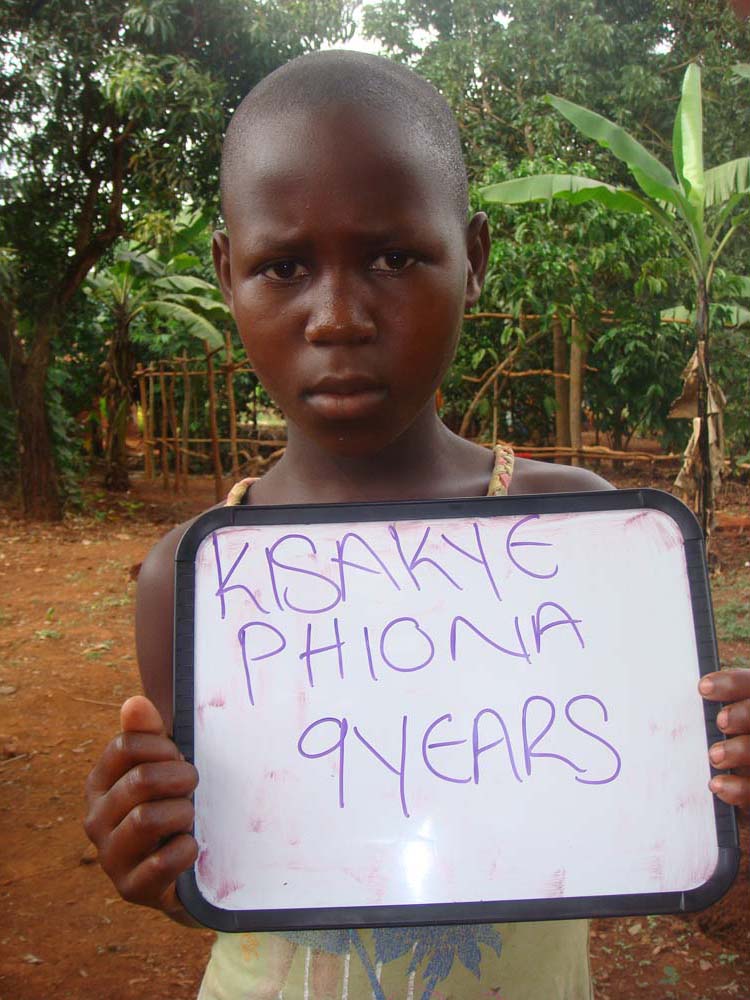 KISAKYE
PHIONA
9YEARS